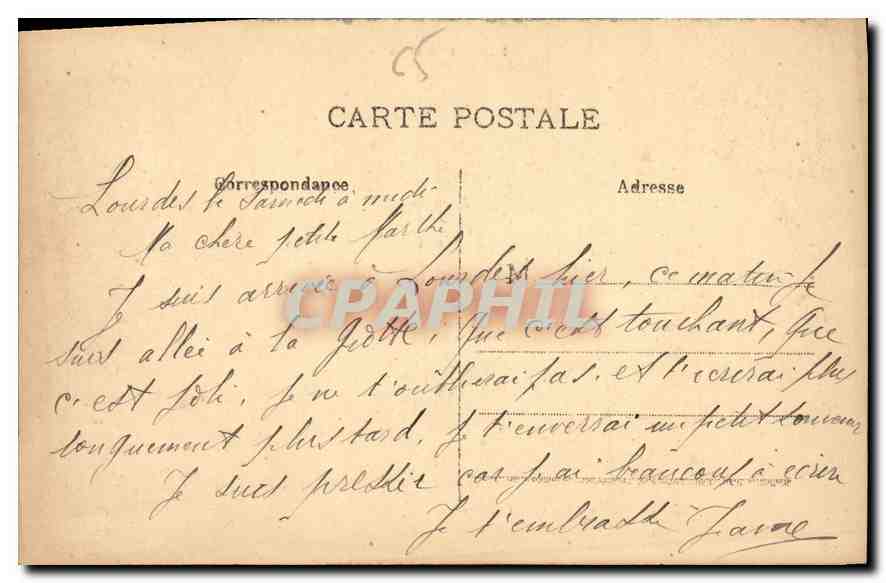 c5
CARTE POSTALE
Correspondance
Adresse
Lourdes le Samedi à midi
Ma chère petite Marthe
Je suis arrivée à Lourdes hier, ce matin Je
suis allée à la Grotte, que c'est touchant, que
c'est Joli, Je ne t'oublierai pas. et t'ecrirai plus
longuement plus tard, Je t'enverrai un petit souvenir
Je suis pressée car J'ai beaucoup à écrire
Je t'embrasse
M
CPAPHIL